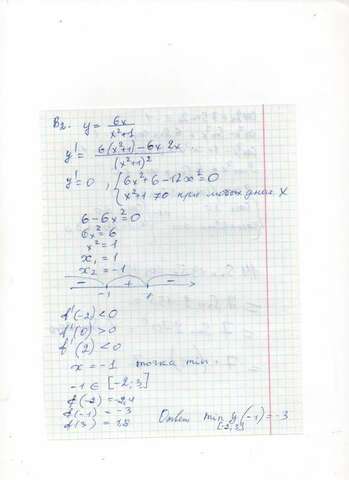 B2. y = 6x/(x²+1)
y' = (6(x²+1) – 6x·2x)/(x²+1)²
y' = 0, { 6x²+6–12x²=0
x²+1≠0 при любых знач. x
6–6x²=0
6x²=6
x²=1
x₁=1
x₂=–1
– + –
–1 1
f'(-2)<0
f'(0)>0
f'(2)<0
x=–1 точка min.
–1 ∈ [–2;3]
f(-2) = –2,4
f(-1) = –3
f(3) = 1,8 Ответ min y(-1)=–3
[-2;3]